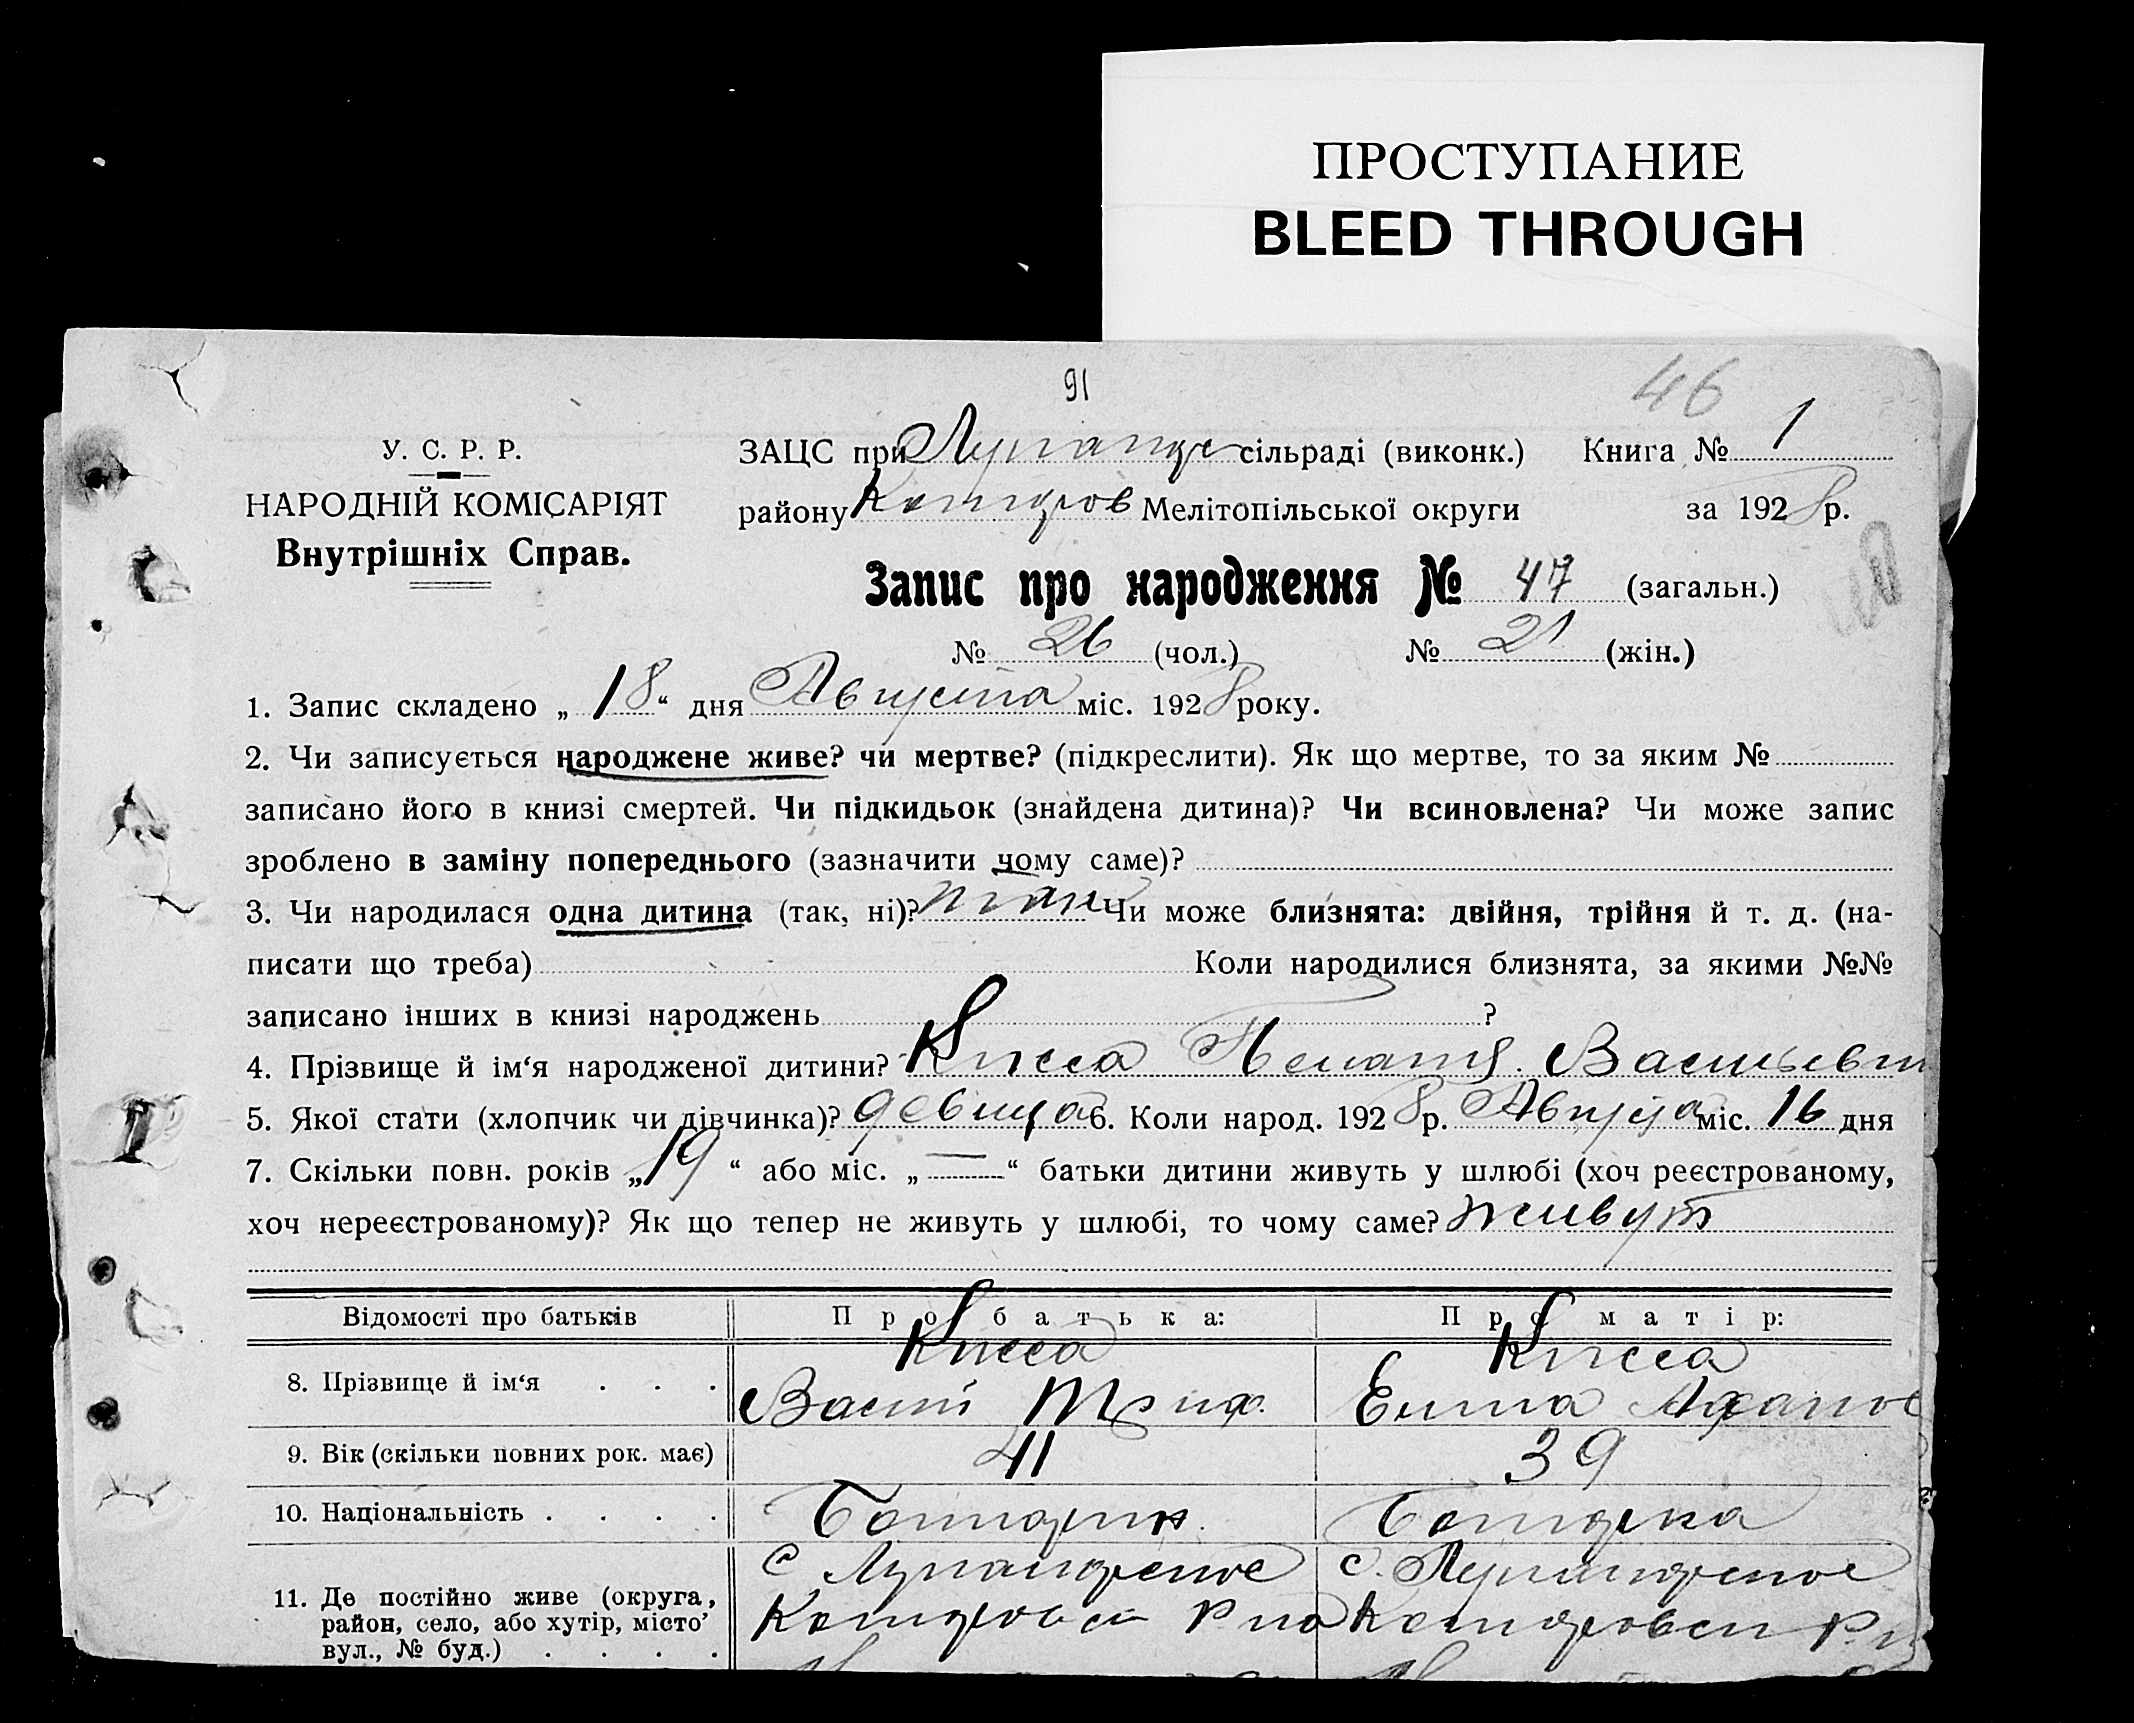 ПРОСТУПАНИЕ
BLEED THROUGH
91
46
У. С. Р. Р.
НАРОДНІЙ КОМІСАРІЯТ
Внутрішніх Справ.
ЗАЦС при сільраді (виконк.) Книга № 1
району Мелітопільської округи за 1928 р.
Запис про народження № 47 (загальн.)
№ 26 (чол.) № 21 (жін.)
1. Запис складено „ 18 “ дня Августа міс. 1928 року.
2. Чи записується народжене живе? чи мертве? (підкреслити). Як що мертве, то за яким №
записано його в книзі смертей. Чи підкидьок (знайдена дитина)? Чи всиновлена? Чи може запис
зроблено в заміну попереднього (зазначити чому саме)?
3. Чи народилася одна дитина (так, ні)? Чи може близнята: двійня, трійня й т. д. (на-
писати що треба) Коли народилися близнята, за якими №№
записано інших в книзі народжень ?
4. Прізвище й ім‘я народженої дитини? Кисса
5. Якої стати (хлопчик чи дівчинка)? девица 6. Коли народ. 1928 р. Августа міс. 16 дня
7. Скільки повн. років „ 19 “ або міс. „ — “ батьки дитини живуть у шлюбі (хоч реєстрованому,
хоч нереєстрованому)? Як що тепер не живуть у шлюбі, то чому саме? живут
Відомості про батьків Про батька: Про матір:
Кисса Кисса
8. Прізвище й ім‘я . . .
9. Вік (скільки повних рок. має) 41 39
10. Національність . . . . Болгарин Болгарка
11. Де постійно живе (округа,
район, село, або хутір, місто’
вул., № буд.) . . . .